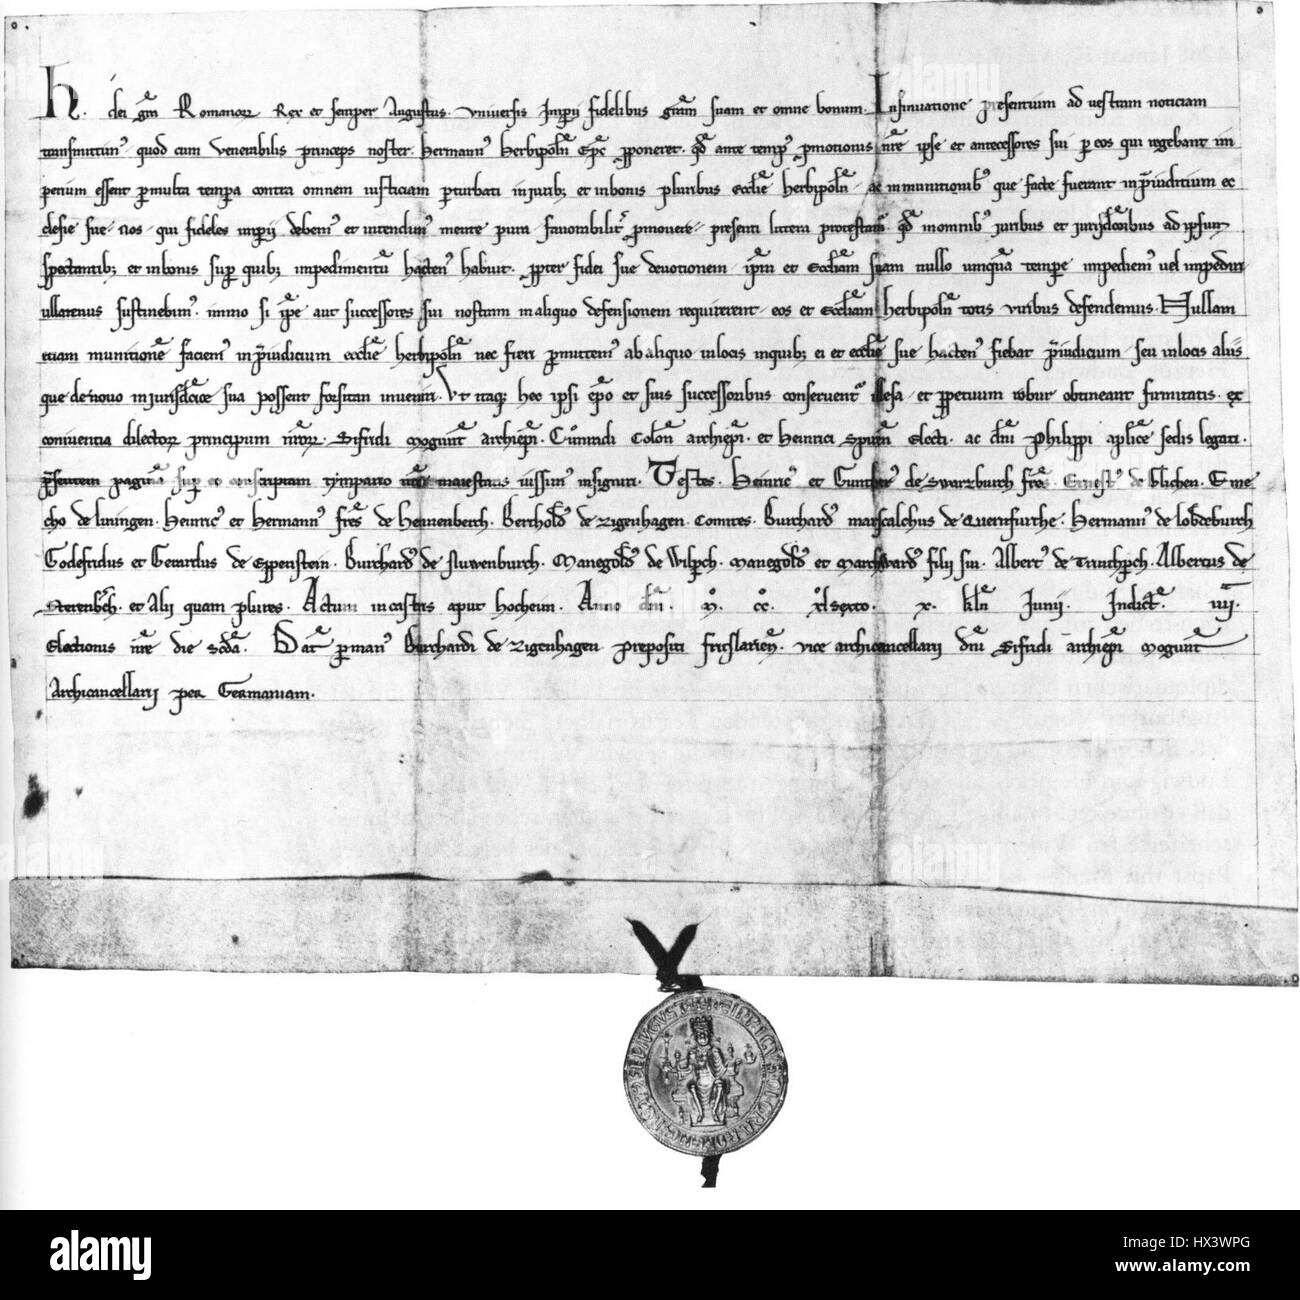 H. dei gra Romanor Rex et semper Augustus. Universis Imperii fidelibus gram suam et omne bonum. Insinuatione presentium ad vestram noticiam
transmittim quod cum venerabilis princeps noster Hermann Herbipoln Epc pponeret. qd ante temp pmotionis nre ipse et antecessores sui p eos qui regebant im
perium essent pmulta tempa contra omnem iusticiam pturbati in iurib et in bonis pluribus Ecclie Herbipoln ac in munitionib que facte fuerant in piudicium ec
clesie sue. Nos qui fideles imperii debem et intendim mente pura favorabilit pmovere presenti littera protestam. qd in omnib iuribus et iurisdcoibus ad ipsum
spectantib et in bonis sup quib impedimentu hacten habuit. ppter fidei sue devotionem ipm et Eccliam suam nullo umqua tempe impediem vel impediri
ullatenus sustinebim. immo si ipe aut successores sui nostram in aliquo defensionem requirerent eos et Eccliam Herbipoln totis viribus defendemus. Nullam
etiam munitione faciem in piudicium ecclie Herbipoln nec fieri pmittem ab aliquo in locis in quib ei et ecclie sue hacten fiebat piudicium seu in locis aliis
que de novo in iurisdcoe sua possent forsitan inveniri. Ut itaq hec ipsi epo et suis successoribus conservent illesa et ppetuum robur obtineant firmitatis. ex
conniventia dilector principum nror Sifridi Mogunt archiepi. Cunradi Colon archiepi. et Heinrici Spiren Electi. ac dni Philippi aplice sedis legati.
psentem pagina sup eo conscriptam tympario nre maiestatis iussim insigniri. Testes. Heinric et Gunther de Swarzburch fres. Ernest de Glichen. Eme
cho de Liningen. Heinric et Hermann fres de Hennenberch. Berthold de Zigenhagen. Comites. Burchard marscalchus de Quernfurthe. Hermann de Lobdeburch
Godefridus et Gerardus de Eppenstein. Burchard de Nuwenburch. Manegold de Wilperch. Manegold et Marchward filii sui. Albert de Truhpch. Albertus de
Sterenbch. et Alii quam plures. Actum in castris aput Hocheim. Anno dni. M. CC. XLsexto. X. kln Junii. Indict. IIII.
Electionis nre die scda. Dat p man Burchardi de Zigenhagen prepositi frislarien. vice archicancellarii dni Sifridi archiepi Mogunt
Archicancellarii per Germaniam.
alamy
HX3WPG
www.alamy.com